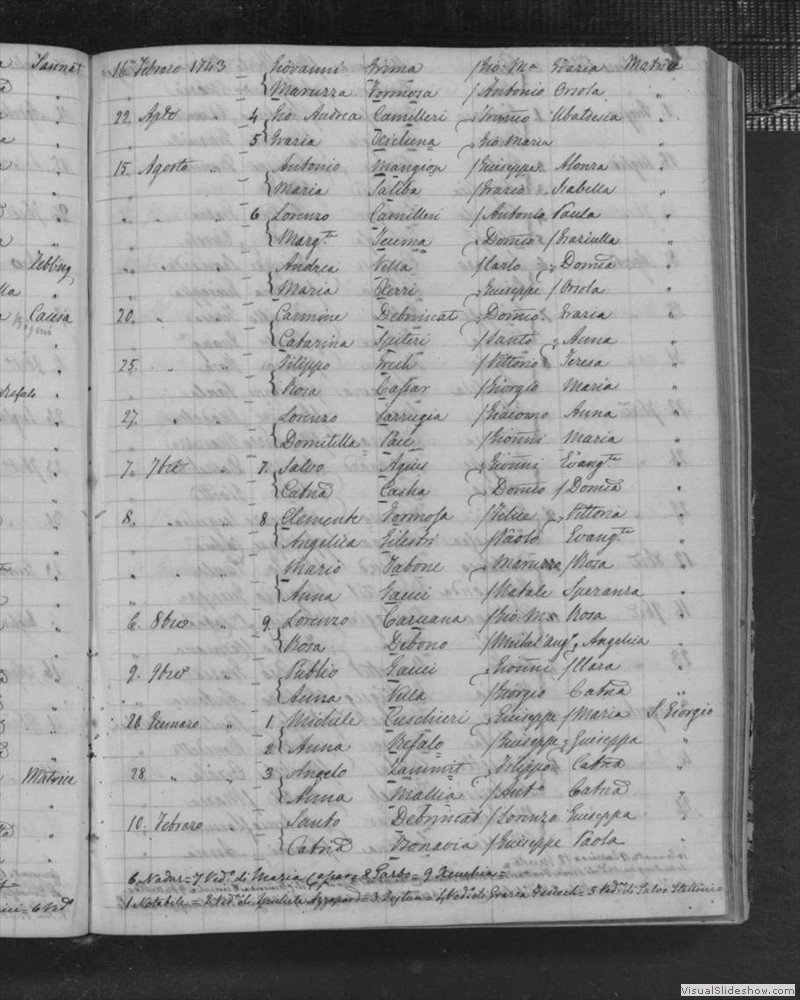 Sannat
16. Febraro 1743 Giovanni Grima / Gio: Mᵃ Grazia Matrice
Maruzza Formosa / Antonio Orsola "
22. Aple " 4 Gio: Andrea Camilleri Ubaldesca "
5 Grazia Xicluna Gio: Maria "
15. Agosto " Antonio Mangion / Giuseppe Alonza "
Maria Saliba / Grazio Isabella "
" " " 6 Lorenzo Camilleri / Antonio Paula "
Margᵗᵃ Teuma Domco / Graziulla "
Zebbug
" " " Andrea Vella / Carlo Domca "
Maria Xerri Giuseppe / Orsola "
Causa
20. " " Carmine Debrincat Domco Grazia "
Catarina Spiteri / Santo Anna "
25. " " Filippo / Vittorio Teresa "
Rosa Caspar / Giorgio Maria "
27. " " Lorenzo Farrugia / Giacomo Anna "
Domitilla Pace / Gionni Maria "
7. 7bre " 7. Salvo Agius Gionni Evangᵗᵃ "
Catna Casha Domco / Domca "
8. " " 8 Clemente Formosa / Felice Vittoria "
Angelica / Paolo Evangᵗᵃ "
" " " Mario Tabone Maruzza / Rosa "
Anna Gauci / Natale Speranza "
6. 8bre " 9. Lorenzo Caruana / Gio: Mᵃ Rosa "
Rosa Debono / Michel Angᵒ Angelica "
9. 9bre " Publio Gauci Gionni / Clara "
Anna Vella / Giorgio Catna "
26 Gennaro " 1. Michele Cuschieri Giuseppe / Maria S. Giorgio
2. Anna Refalo / Giuseppe Giuseppa "
Matrice
28. " " 3 Angelo Zammit Filippo Catna "
Anna Mallia / Antᵒ Catna "
10. Febraro Santo Debrincat / Lorenzo Giuseppa "
Catna Bonavia / Giuseppe Paola "
6 Nadur = 7 Vedᵒ di Maria Caspar = 8 Garbo = 9 Xeuchia =
1 Notabile = 2 Vedᵃ di Azzopard = 3 Zejtun = 4 Vedᵒ di Grazia = 5 Vedᵃ di Salvo Stellini =
VisualSlideshow.com